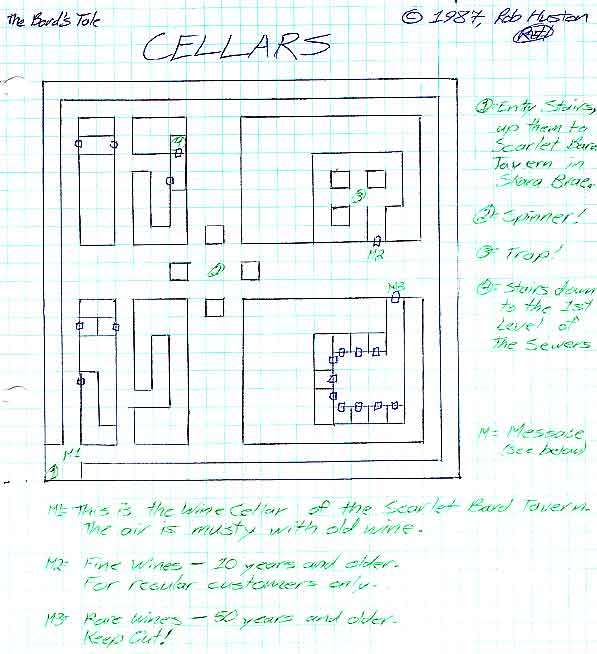 The Bard's Tale
© 1987, Rob Huston
CELLARS
1 = Entry Stairs,
up them to
Scarlet Bard
Tavern in
Skara Brae.
2 = Spinner!
3 = Trap!
4 = Stairs down
to the 1st
Level of
The Sewers
M = Message
(see below)
4
3
M2
2
M3
M1
1
M1= This is the Wine Cellar of the Scarlet Bard Tavern.
The air is musty with old wine.
M2= Fine Wines — 10 years and older.
For regular customers only.
M3= Rare Wines — 50 years and older.
Keep Out!